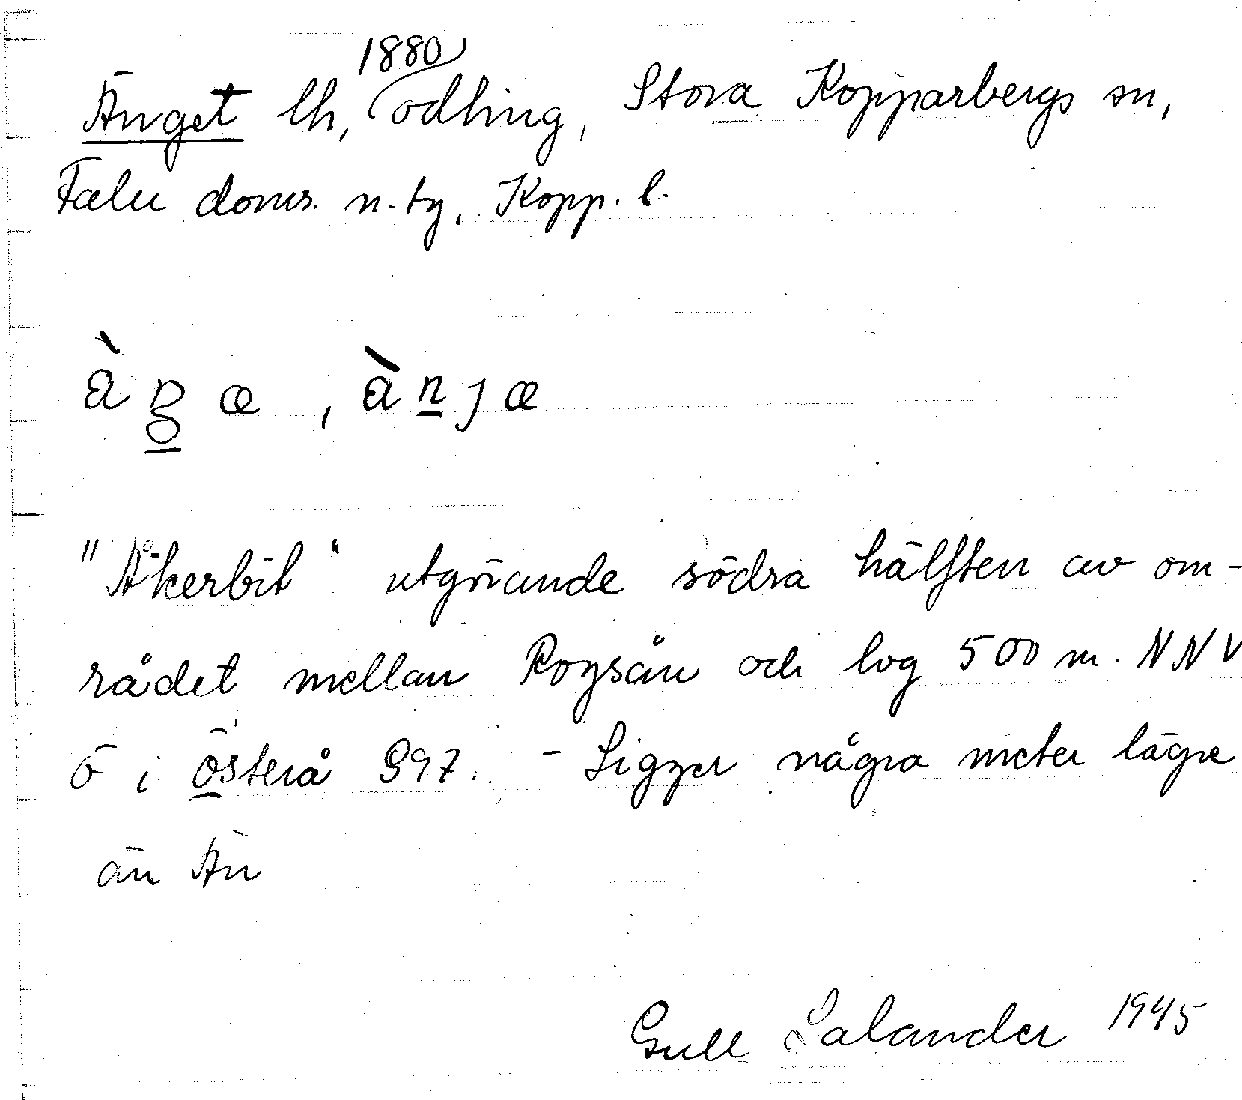 1880
Änget lh, odling, Stora Kopparbergs sn,
Falu doms. n. tg, Kopp. l.
"Åkerbit" utgörande södra hälften av om-
rådet mellan Rogsån och lvg 500 m. NNV
ö i Österå 897. - Ligger några meter lägre
än Än
Gull Salander 1945